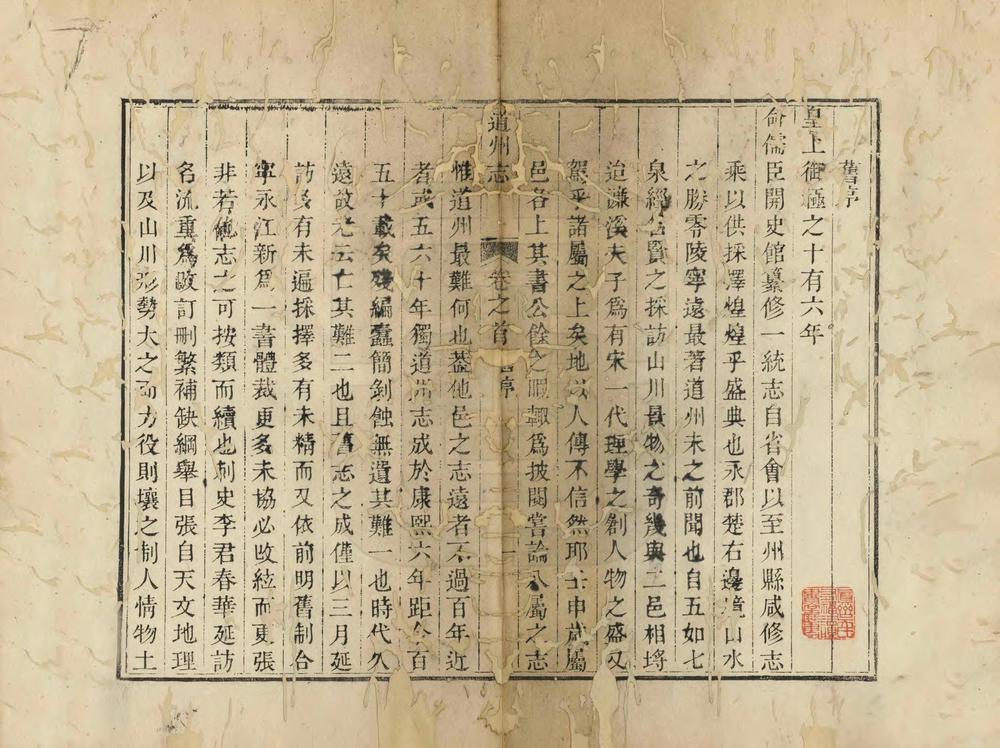 舊序
皇上御極之十有六年
命儒臣開史館纂修一統志自省會以至州縣咸修志
乘以供採擇煌煌乎盛典也永郡楚右邊境山水
之勝零陵寧遠最著道州未之前聞也自五如七
泉經名賢之採訪山川景物之奇幾與二邑相埒
迨濂溪夫子為有宋一代理學之創人物之盛又
駕乎諸屬之上矣地以人傳不信然耶壬申歲屬
邑各上其書公餘之暇輒為披閱嘗論八屬之志
道州志 卷之首 舊序 一
惟道州最難何也蓋他邑之志遠者不過百年近
者或五六十年獨道州志成於康熙六年距今百
五十載矣殘編蠹簡剝蝕無遺其難一也時代久
遠故老云亡其難二也且舊志之成僅以三月延
訪既有未遍採擇多有未精而又依前明舊制合
寧永江新為一書體裁更多未協必改絃而更張
非若他志之可按類而續也刺史李君春華延訪
名流重為改訂刪繁補缺綱舉目張自天文地理
以及山川形勢大之而力役則壤之制人情物土